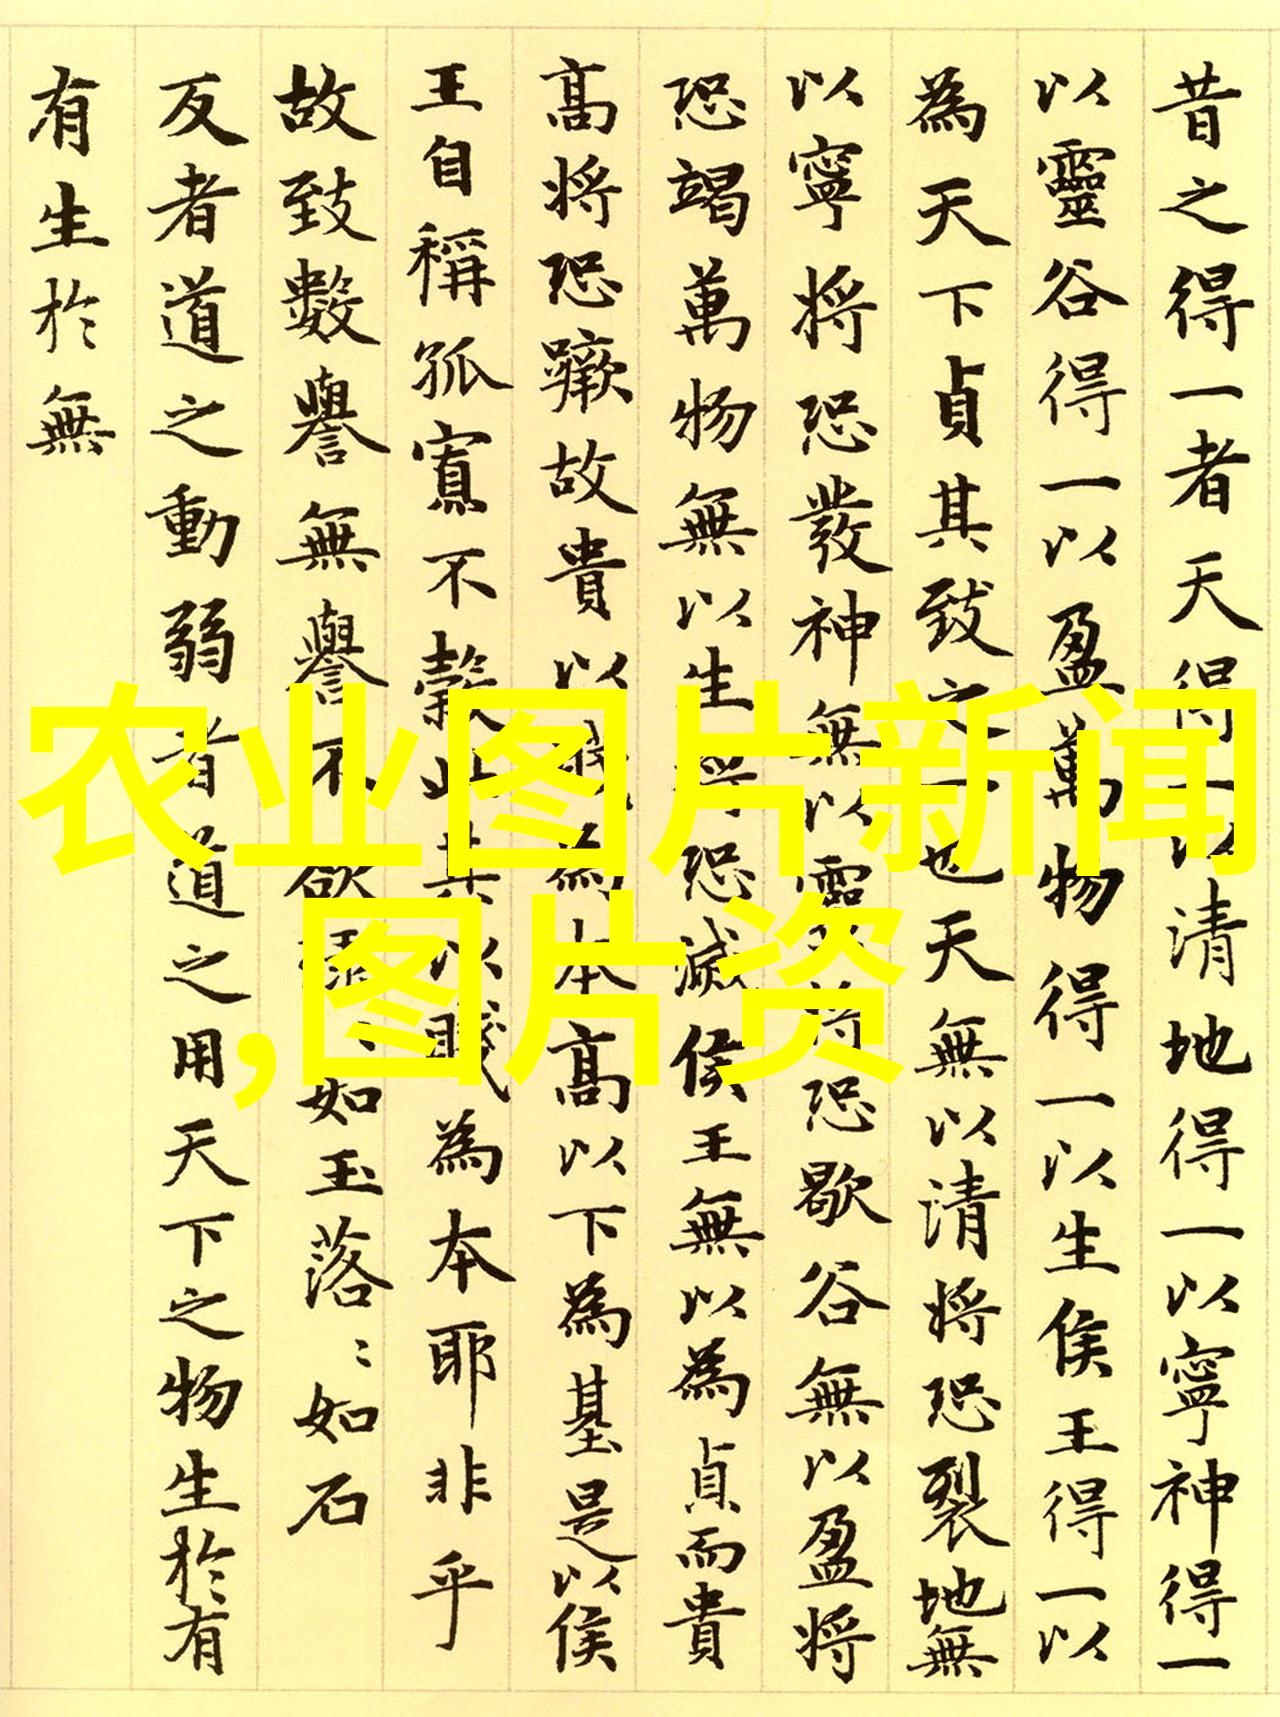 昔之得一者天得一以清地得一以寧神得一
以靈谷得一以盈萬物得一以生侯王得一以
為天下貞其致之一也天無以清將恐裂地無
以寧將恐發神無以靈將恐歇谷無以盈將
恐竭萬物無以生將恐滅侯王無以為貞而貴
高將恐蹶故貴以賤為本高以下為基是以侯
王自稱孤寡不穀此其以賤為本耶非乎
故致數譽無譽不欲琭〻如玉落〻如石
反者道之動弱者道之用天下之物生於有
有生於無
农业图片新闻
,图片资